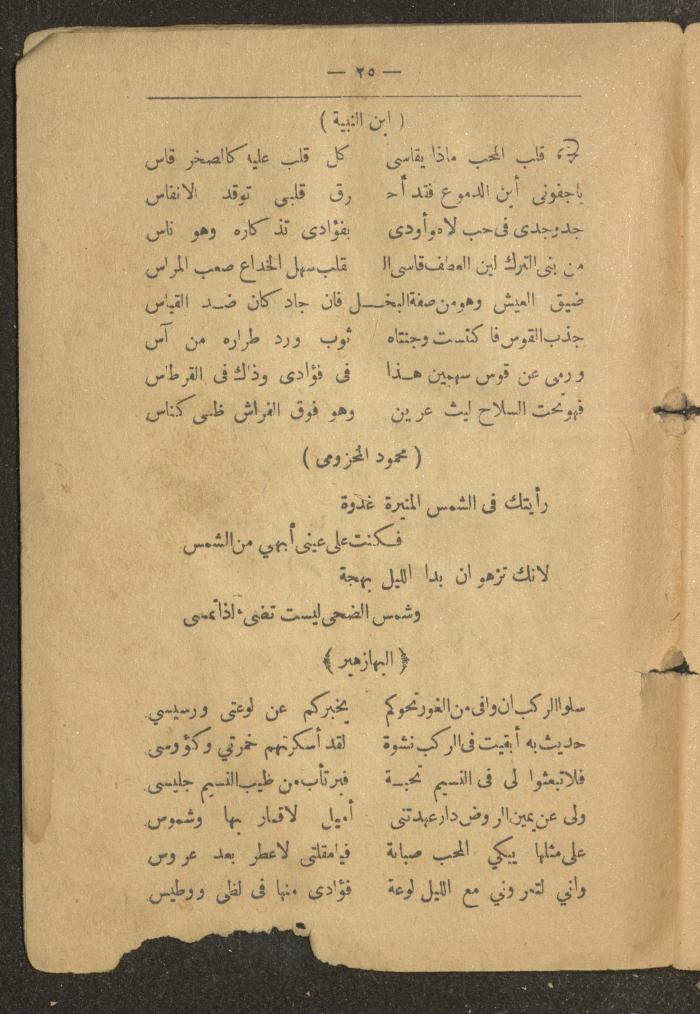 — ٢٥ —
( ابن النبية )
قلب المحب ماذا يقاسى كل قلب عليه كالصخر قاس
ياجفونى أين الدموع فقد أحـ رق قلبى توقد الانفاس
جدوجدى فى حب لاه وأودى بفؤادى تذكاره وهو ناس
من بنى الترك لين العطف قاسى الـ قلب سهل الخداع صعب المراس
ضيق العيش وهومن صفة البخــل فان جاد كان ضـد القياس
جذب القوس فاكتست وجنتاه ثوب ورد طرازه من آس
ورمى عن قوس سهمين هـذا فى فؤادى وذاك فى القرطاس
فهوتحت السلاح ليث عرين وهو فوق الفراش ظبى كناس
( محمود المخزومى )
رأيتك فى الشمس المنيرة غدوة
فـكنت على عينى أبهي من الشمس
لانك تزهو ان بدا الليل بهجة
وشمس الضحى ليست تضىء اذا تمسى
﴿ البهازهير ﴾
سلوا الركب ان وافى من الغور نحوكم يخبركم عن لوعتى ورسيسي
حديث به أبقيت فى الركب نشوة لقد أسكرتهم خمرتي وكؤوسى
فلا تبعثوا لى فى النسيم تحيـة فيرتأب من طيب النسيم جليسى
ولى عن يمين الروض دار عهدتنى أميل لاقمار بها وشموس
على مثلها يبكي المحب صبابة فيامقلتى لاعطر بعد عروس
واني لتعروني مع الليل لوعة فؤادى منها فى لظى ووطيس